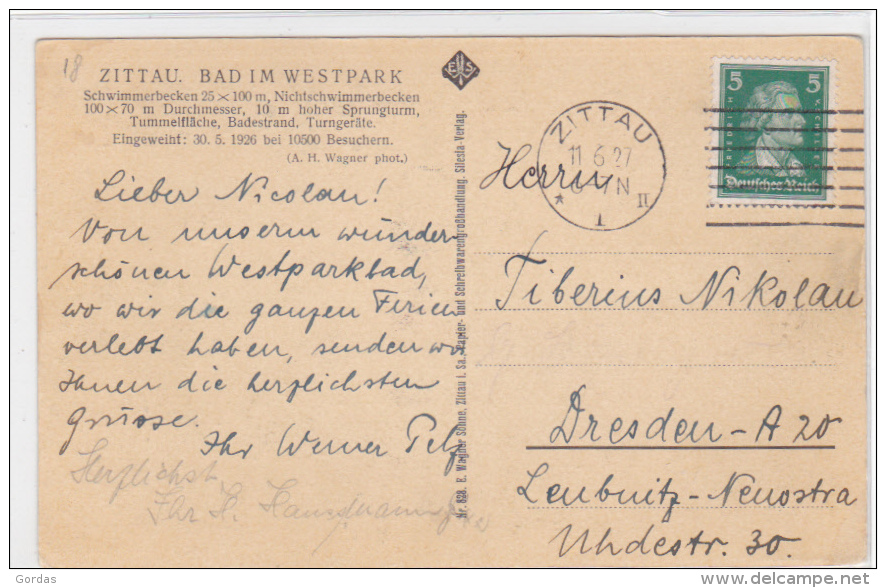 18
ZITTAU. BAD IM WESTPARK
Schwimmerbecken 25×100 m, Nichtschwimmerbecken
100×70 m Durchmesser, 10 m hoher Sprungturm,
Tummelfläche, Badestrand, Turngeräte.
Eingeweiht: 30. 5. 1926 bei 10500 Besuchern.
(A. H. Wagner phot.)
Lieber Nicolau!
Von unserm wunder-
schönen Westparkbad,
wo wir die ganzen Ferien
verlebt haben, senden wir
Ihnen die herzlichsten
Grüsse.
Ihr Werner Pelz
Herzlichst
Ihr H.
Nr. 828. E. Wagner Söhne, Zittau i. Sa., Papier- und Schreibwarengroßhandlung. Silesia-Verlag.
E S
ZITTAU
11.6.27
7N
* 1 II
5 5
FRIEDRICH V. SCHILLER
Deutsches Reich
Herrn
Tiberius Nikolau
Dresden-A 20
Leubnitz-Neuostra
Uhdestr. 30.
Gordas
www.delcampe.net